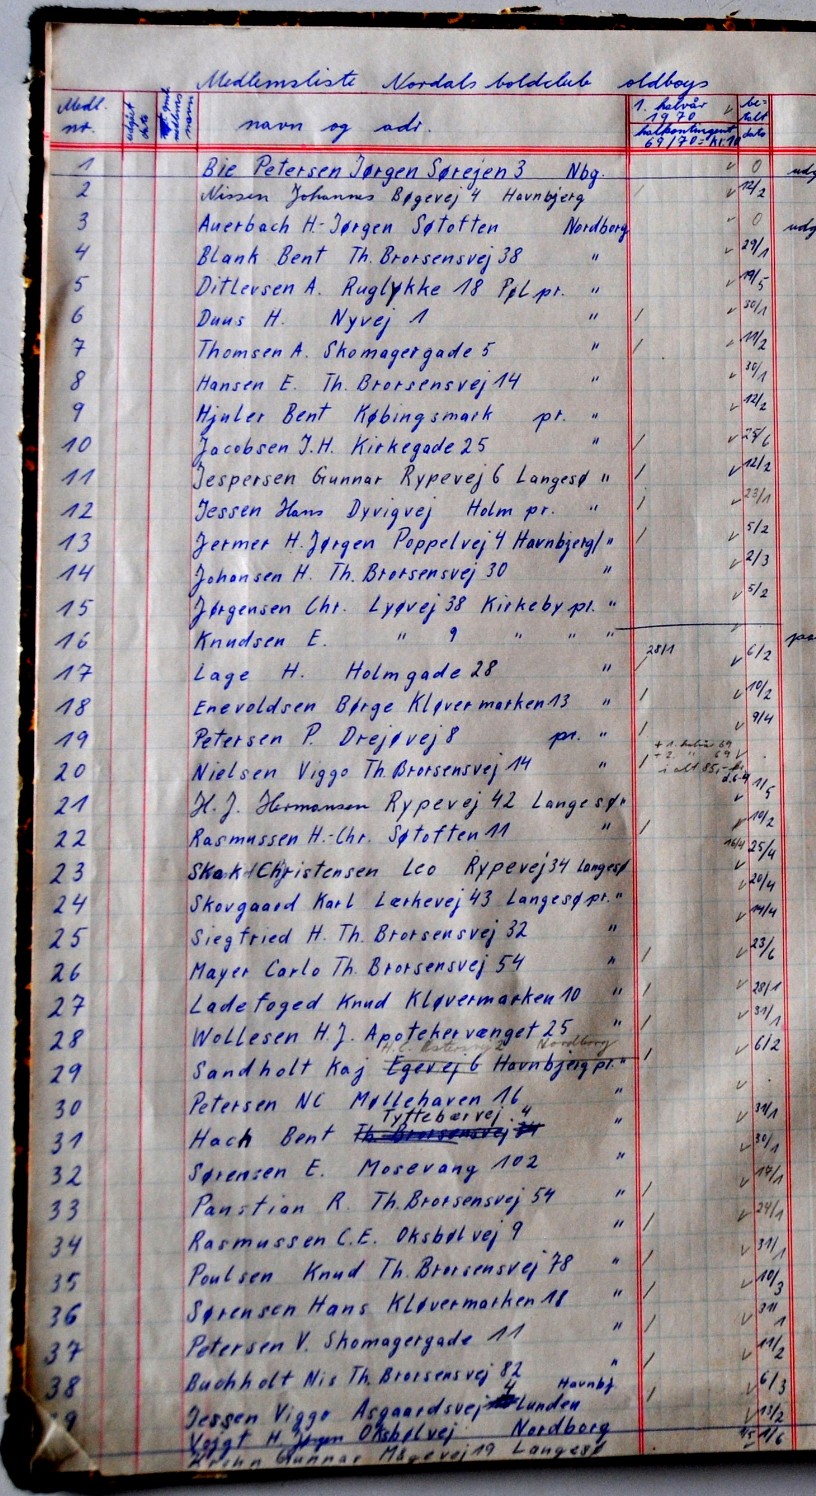 Medlemsliste Nordals boldclub oldboys
Medl. nr. udgået dato navn og adr. 1. halvår 1970 halkontingent 69/70 = kr. 10 be-talt dato
1 Bie Petersen Jørgen Sørejen 3 Nbg. ✓ 0 udg
2 Nissen Johannes Bøgevej 4 Havnbjerg / ✓ 12/2
3 Auerbach H-Jørgen Søtoften Nordborg ✓ 0 udg
4 Blank Bent Th. Brorsensvej 38 " ✓ 29/1
5 Ditlevsen A. Ruglykke 18 Pøl pr. " ✓ 19/5
6 Duus H. Nyvej 1 " / ✓ 30/1
7 Thomsen A. Skomagergade 5 " / ✓ 11/2
8 Hansen E. Th. Brorsensvej 14 " ✓ 30/1
9 Hjuler Bent Købingsmark pr. " ✓ 12/2
10 Jacobsen J.H. Kirkegade 25 " / ✓ 25/6
11 Jespersen Gunnar Rypevej 6 Langesø " / ✓ 12/2
12 Jessen Hans Dyvigvej Holm pr. " / ✓ 23/1
13 Jermer H. Jørgen Poppelvej 4 Havnbjerg/" / ✓ 5/2
14 Johansen H. Th. Brorsensvej 30 " ✓ 2/3
15 Jørgensen Chr. Lyøvej 38 Kirkeby pr. " ✓ 5/2
16 Knudsen E. " 9 " " " ✓
17 Lage H. Holmgade 28 " 28/1 / ✓ 6/2
18 Enevoldsen Børge Kløvermarken 13 " / ✓ 10/2
19 Petersen P. Drejøvej 8 pr. " / ✓ 9/4
+ 1. halvår 69
+ 2. " 69
20 Nielsen Viggo Th. Brorsensvej 14 " / i alt 85,- ✓
21 H.J. Hermansen Rypevej 42 Langesø " ✓ 1/5
22 Rasmussen H.-Chr. Søtoften 11 " / ✓ 10/2
23 Skak-Christensen Leo Rypevej 34 Langesø 16/4 ✓ 25/4
24 Skovgaard Karl Lærkevej 43 Langesø pr. " ✓ 20/4
25 Siegfried H. Th. Brorsensvej 32 " ✓ 14/4
26 Mayer Carlo Th. Brorsensvej 54 " / ✓ 23/6
27 Ladefoged Knud Kløvermarken 10 " / ✓ 28/1
28 Wollesen H.J. Apotekervænget 25 " / ✓ 31/1
Nordborg
29 Sandholt Kaj Egevej 6 Havnbjerg pr. " / ✓ 6/2
30 Petersen NC Møllehaven 16 " ✓
Tyttebærvej 4
31 Hach Bent Th. Brorsensvej " ✓ 31/1
32 Sørensen E. Mosevang 102 " ✓ 30/1
33 Paustian R. Th. Brorsensvej 54 " / ✓ 14/1
34 Rasmussen C.E. Oksbølvej 9 " / ✓ 24/1
35 Poulsen Knud Th. Brorsensvej 78 " / ✓ 31/1
36 Sørensen Hans Kløvermarken 18 " / ✓ 10/3
37 Petersen V. Skomagergade 11 " / ✓ 31/1
38 Buchholt Nis Th. Brorsensvej 82 " / ✓ 11/2
39 Jessen Viggo Asgaardsvej 4 Lunden Havnbj / ✓ 6/3
Vojgt H. Jørgen Oksbølvej Nordborg ✓ 13/2
Gunnar Mågevej 19 Langesø 1/6